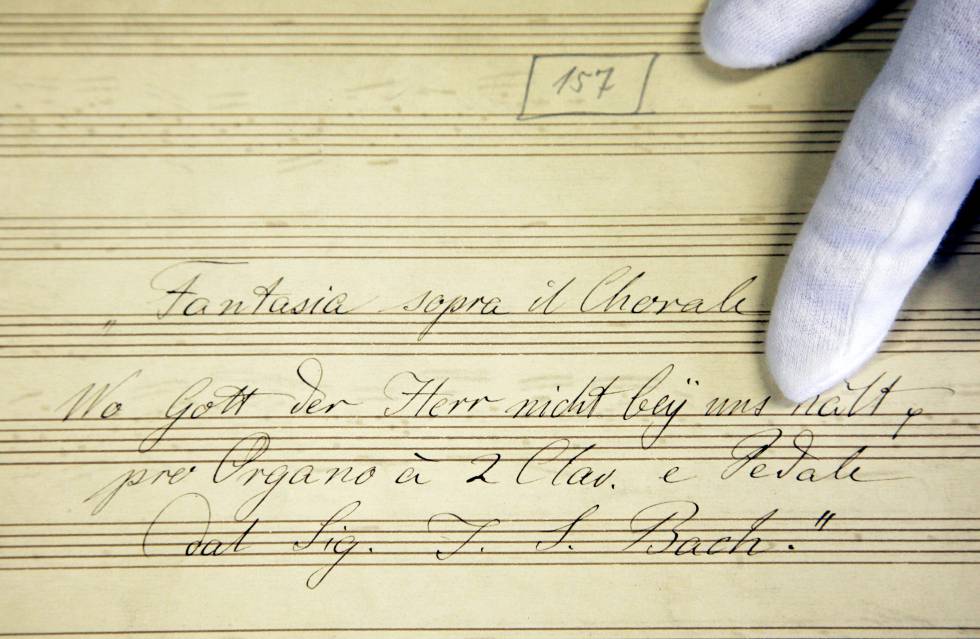 157
„Fantasia sopra il Chorale
Wo Gott der Herr nicht beÿ uns hält
pro Organo à 2 Clav. e Pedale
dal Sig. J. S. Bach."